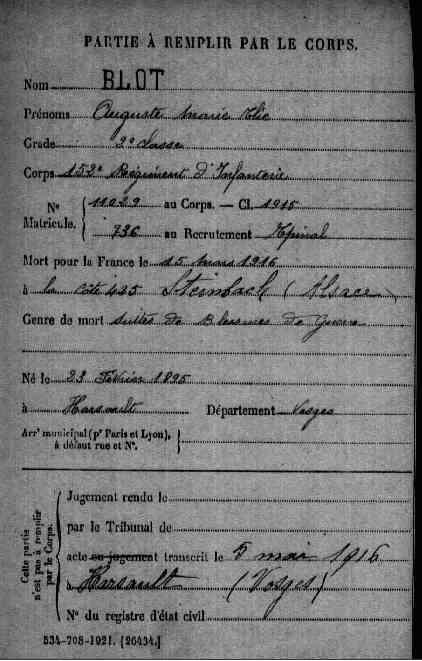 PARTIE À REMPLIR PAR LE CORPS.
Nom BLOT
Prénoms Auguste Marie Elie
Grade 2e classe
Corps 152e Régiment d'Infanterie
Nº Matricule. 11029 au Corps. — Cl. 1915
736 au Recrutement Epinal
Mort pour la France le 15 mars 1916
à la côte 425 Steinbach (Alsace)
Genre de mort suites de Blessures de Guerre
Né le 23 Février 1895
à Harsault Département Vosges
Arrt municipal (pr Paris et Lyon),
à défaut rue et Nº.
Cette partie
n'est pas à remplir
par le Corps.
Jugement rendu le
par le Tribunal de
acte ou jugement transcrit le 5 mai 1916
à Harsault (Vosges)
Nº du registre d'état civil
534-708-1921. [26434.]